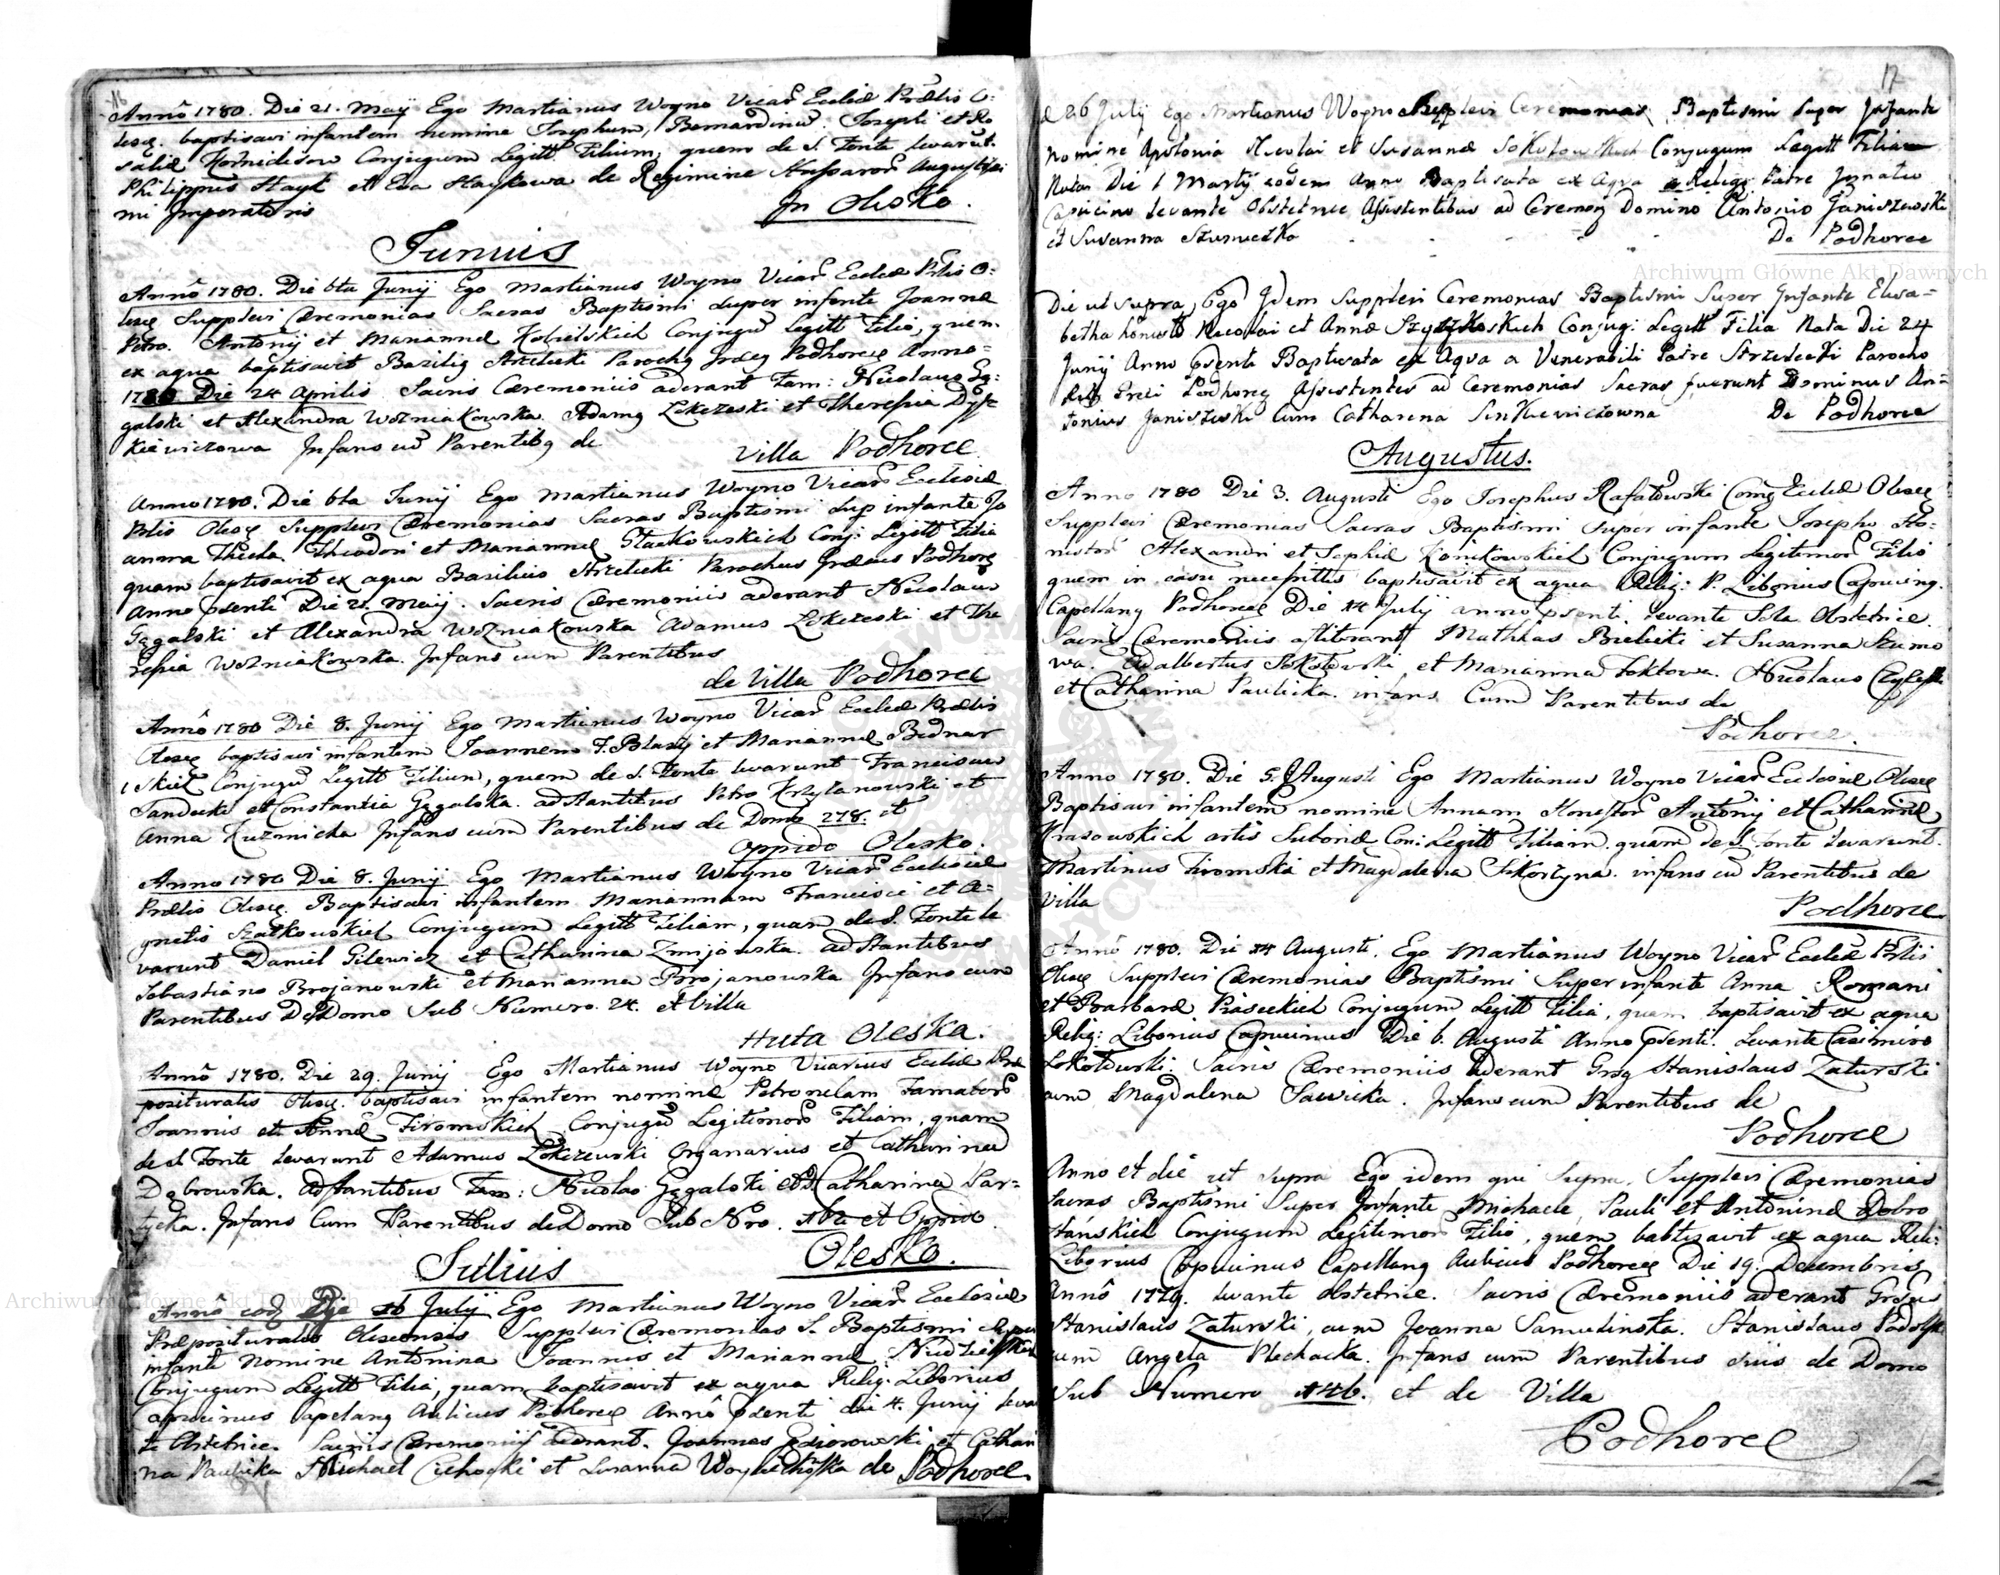 16
Annô 1780. Die 21. Maÿ Ego Martianus Woyno Vicarˢ Eccliæ Prælis O:
lesc. baptisavi infantem nomine Josephum, Bernardinũ. Josephi et Ro
saliæ Conjugum Legitt. Filium, quem de S. Fonte levarũt.
Philippus Hayk et Eva Haykowa de Regimine Hussarorũ Augustissi
mi Imperatoris
In Olesko.
Junius
Annô 1780. Die 6ta Junij Ego Martianus Woyno Vicarˢ Eccliæ Prlis O:
lesc. Supplevi Cæremonias Sacras Baptismi super infante Joanne
Petro. Antonij et Mariannæ Kobielskich Conjugũ Legitt Filio, quem
ex aqua baptisavit Basilig Strzelecki Parochg Græcg Podhorceg Anno=
1780 Die 24 Aprilis. Sacris Cæremoniis aderant Fam: Nicolaus Gę:
galski et Alexandra Wozniakowska. Adamg Lekezeski et Theresia Dys
kiewiczowa Infans cũ Parentibg de
Villa Podhorce.
Anno 1780. Die 6ta Junij Ego Martianus Woyno Vicarˢ Ecclesiæ
Prlis Olesc. Supplevi Cæremonias Sacras Baptismi sup infante Jo
anna Thecla. Theodori et Mariannæ Conj: Legitt Filia
quam baptisavit ex aqua Basilius Strzelecki Parochus Græcus Podhorc
Anno psenti Die 21. Maij. Sacris Cæremoniis aderant Nicolaus
Gęgalski et Alexandra Wozniakowska Adamus Lekezeski et The
resia Wozniakowska. Infans cum Parentibus
de Villa Podhorce
Annô 1780 Die 8. Junij Ego Martianus Woyno Vicarˢ Eccliæ Prælis
Olesc baptisavi infantem Joannem F. Blasij et Mariannæ Bednar
skich Conjugũ Legitt Filium, quem de S. Fonte levarunt Franciscus
Sandecki et Constantia Gęgalska. adstantibus Petro Krzyzanowski et
Anna Kuzmicka Infans cum Parentibus de Domo 278. et
Oppido Olesko.
Anno 1780 Die 8. Junij Ego Martianus Woyno Vicarˢ Ecclesiæ
Prælis Olesc. Baptisavi infantem Mariannam Francisci et A=
gnetis Szatkowskich Conjugum Legitt Filiam, quam de S. Fonte le
varunt Daniel Gilewicz et Catharina Zmijowska. adstantibus
Sebastiano Brojanowski et Marianna Brojanowska Infans cum
Parentibus De Domo Sub Numero. 24. et Villa
Huta Oleska.
Annô 1780. Die 29. Junij Ego Martianus Woyno Vicarius Eccliæ Præ
posituralis Olesc. baptisavi infantem nomine Petronelam Famatorũ
Joannis et Annæ Firomskich Conjugũ Legitimorũ Filiam, quam
de S. Fonte levarunt Adamus Lekezewski Organarius et Catharina
Dąbrowska. adstantibus Fam: Nicolao Gęgalski et Catharina Par=
tycka. Infans Cum Parentibus de Domo Sub Nro. 162 et Oppido
Olesko.
Julius
Annô eod Die 16 Julij Ego Martianus Woyno Vicarˢ Ecclesiæ
Præposituralis Olescensis Supplevi Cæremonias S. Baptismi super
infante nomine Antonina Joannis et Mariannæ
Conjugum Legitt Filia, quam baptisavit ex aqua Relig: Liborius
Capucinus Capelang Aulicus Podhorceg Annô psenti die 4. Junij leva
te Obstetrice. Sacris Cæremoniis aderant. Joannes Jeziorowski et Cathari
na Paulicka Michael Cichocki et Susanna de Podhorce.
17
d 26 Julÿ Ego Martianus Woyno Supplevi Ceremonias Baptismi super Infante
Nomine Apolonia Nicolai et Susannæ Sokołowskich Conjugum Legitt Filia
Nata Die 1 Martÿ eodem Anno Baptisata ex Aqua a Religo Patre Ignatio
Capucino levante Obstetrice, Assistentibus ad Ceremon Domino Antonio Janiszewski
et Susanna Szumczka De Podhorce
Die ut supra, Ego Idem Supplevi Ceremonias Baptismi Super Infante Elisa=
betha honestũ Nicolai et Annæ Conjug: Legitt Filia Nata Die 24
Junÿ Anno psenti Baptisata ex Aqua a Venerabili Patre Strzelecki Parocho
Rus Græci Podhorceg Assistentes ad Ceremonias Sacras fuerunt Dominus An=
tonius Janiszeski Cum Catharina Sinkiewiczowna De Podhorce
Augustus.
Anno 1780 Die 3. Augusti Ego Josephus Rafałowski Comg Eccliæ Olesc
Supplevi Cæremonias Sacras Baptismi super infante Josepho Ho=
nestorũ Alexandri et Sophiæ Conjugum Legitimorũ Filio
quem in casu necessitis baptisavit ex aqua Relig: P. Liborius Capucing.
Capellang Podhorceg Die 14 Julij anno psenti. levante Sola Obstetrice.
Sacris Cæremoniis astiterant Mathias Bielecki et Susanna Szumo
wa. Adalbertus Sokołowski et Marianna Toktowa. Nicolaus
et Catharina Paulicka. infans Cum Parentibus de
Podhorce.
Anno 1780. Die 5. Augusti Ego Martianus Woyno Vicarˢ Ecclesiæ Olesc
Baptisavi infantem nomine Annam Honestorũ Antonij et Catharinæ
Krasowskich artis Sutoriæ Con: Legitt Filiam. quam de S. fonte levarunt.
Martinus Firomski et Magdalena Sikorzyna. infans cũ Parentibus de
Villa
Podhorce
Annô 1780. Die 14 Augusti. Ego Martianus Woyno Vicarˢ Eccliæ Prlis
Olesc Supplevi Cæremonias Baptismi Super infante Anna Romani
et Barbaræ Piaseckich Conjugum Legitt Filia, quam baptisavit ex aqua
Relig: Liborius Capucinus Die 6. Augusti Anno psenti. Levante Casimiro
Sokołowski. Sacris Cæremoniis aderant Grsg Stanislaus Zaturski
cum Magdalena Sawicka. Infans cum Parentibus de
Podhorce
Anno et die ut supra Ego idem qui supra. Supplevi Cæremonias
Sacras Baptismi Super Infante Michaele, Pauli et Antoninæ Dobro
stańskich Conjugum Legitimorũ Filio, quem babtisavit ex aqua Reli:
Liborius Capucinus Capellang Aulicus Podhorceg Die 19. Decembris
Annô 1779. levante obstetrice. Sacris Cæremoniis aderant Grsus
Stanislaus Zaturski, cum Joanna Samulinska. Stanislaus
cum Angela Plechacka. Infans cum Parentibus suis de Domo
Sub Numero 146. et de Villa
Podhorce
Archiwum Główne Akt Dawnych
Archiwum Główne Akt Dawnych